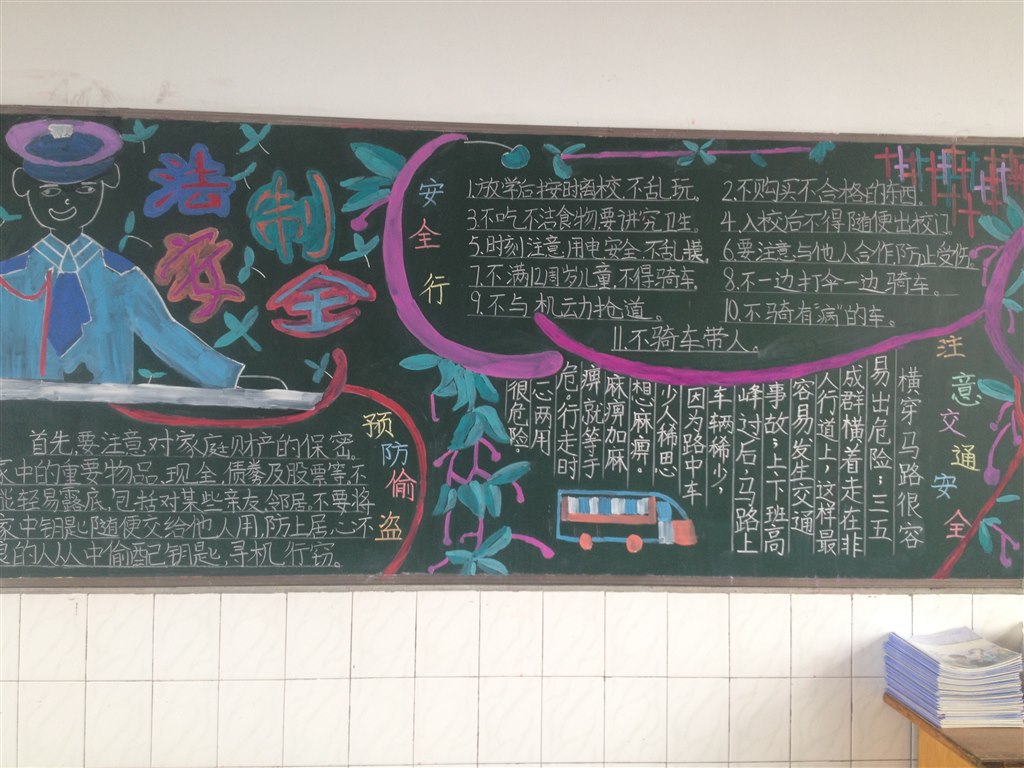 法制
安全
安全行
1.放学后按时离校,不乱玩。
2.不购买不合格的东西。
3.不吃不洁食物要讲究卫生。
4.入校后不得随便出校门。
5.时刻注意用电安全,不乱摸。
6.要注意与他人合作防止受伤。
7.不满12周岁儿童,不得骑车。
8.不一边打伞一边骑车。
9.不与机动力抢道。
10.不骑有病的车。
11.不骑车带人。
预防偷盗
首先,要注意对家庭财产的保密。
家中的重要物品,现金,债券及股票等,不
能轻易露底,包括对某些亲友,邻居,不要将
家中钥匙随便交给他人用,防止居心不
良的人从中偷配钥匙,寻机行窃。
注意交通安全
横穿马路很容
易出危险:三五
成群横着走在非
人行道上,这样最
容易发生交通
事故;上下班高
峰过后,马路上
车辆稀少,
因为路中车
少人稀思
想麻痹。
麻痹加麻
痹,就等于
危。行走时
心两用
很危险。